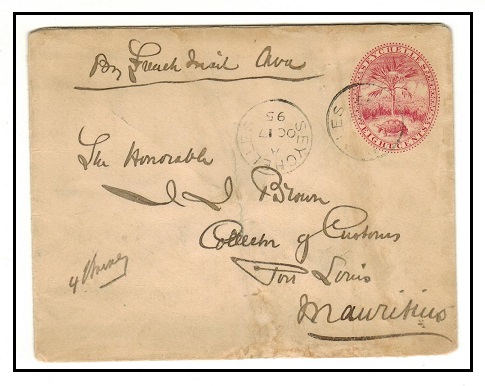 By French Mail Ava
SEYCHELLES
EIGHT CENTS
SEYCHELLES
A
OC 17
95
LES
The Honorable
Brown
Collector of Customs
Port Louis
Mauritius